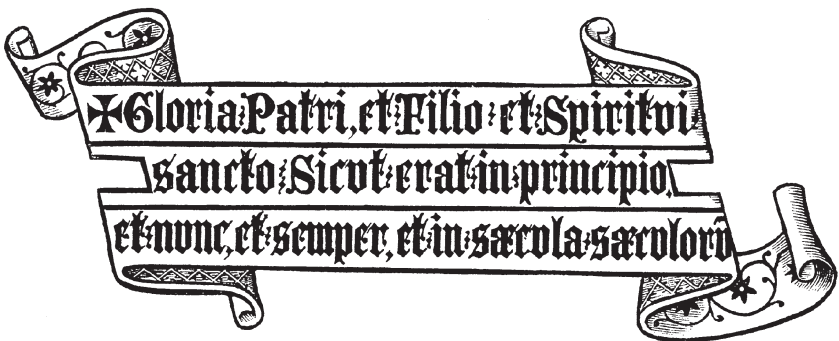 ✠Gloria Patri, et Filio et Spiritvi
sancto Sicvt erat in principio,
et nvnc, et semper, et in sæcvla sæcvlorū